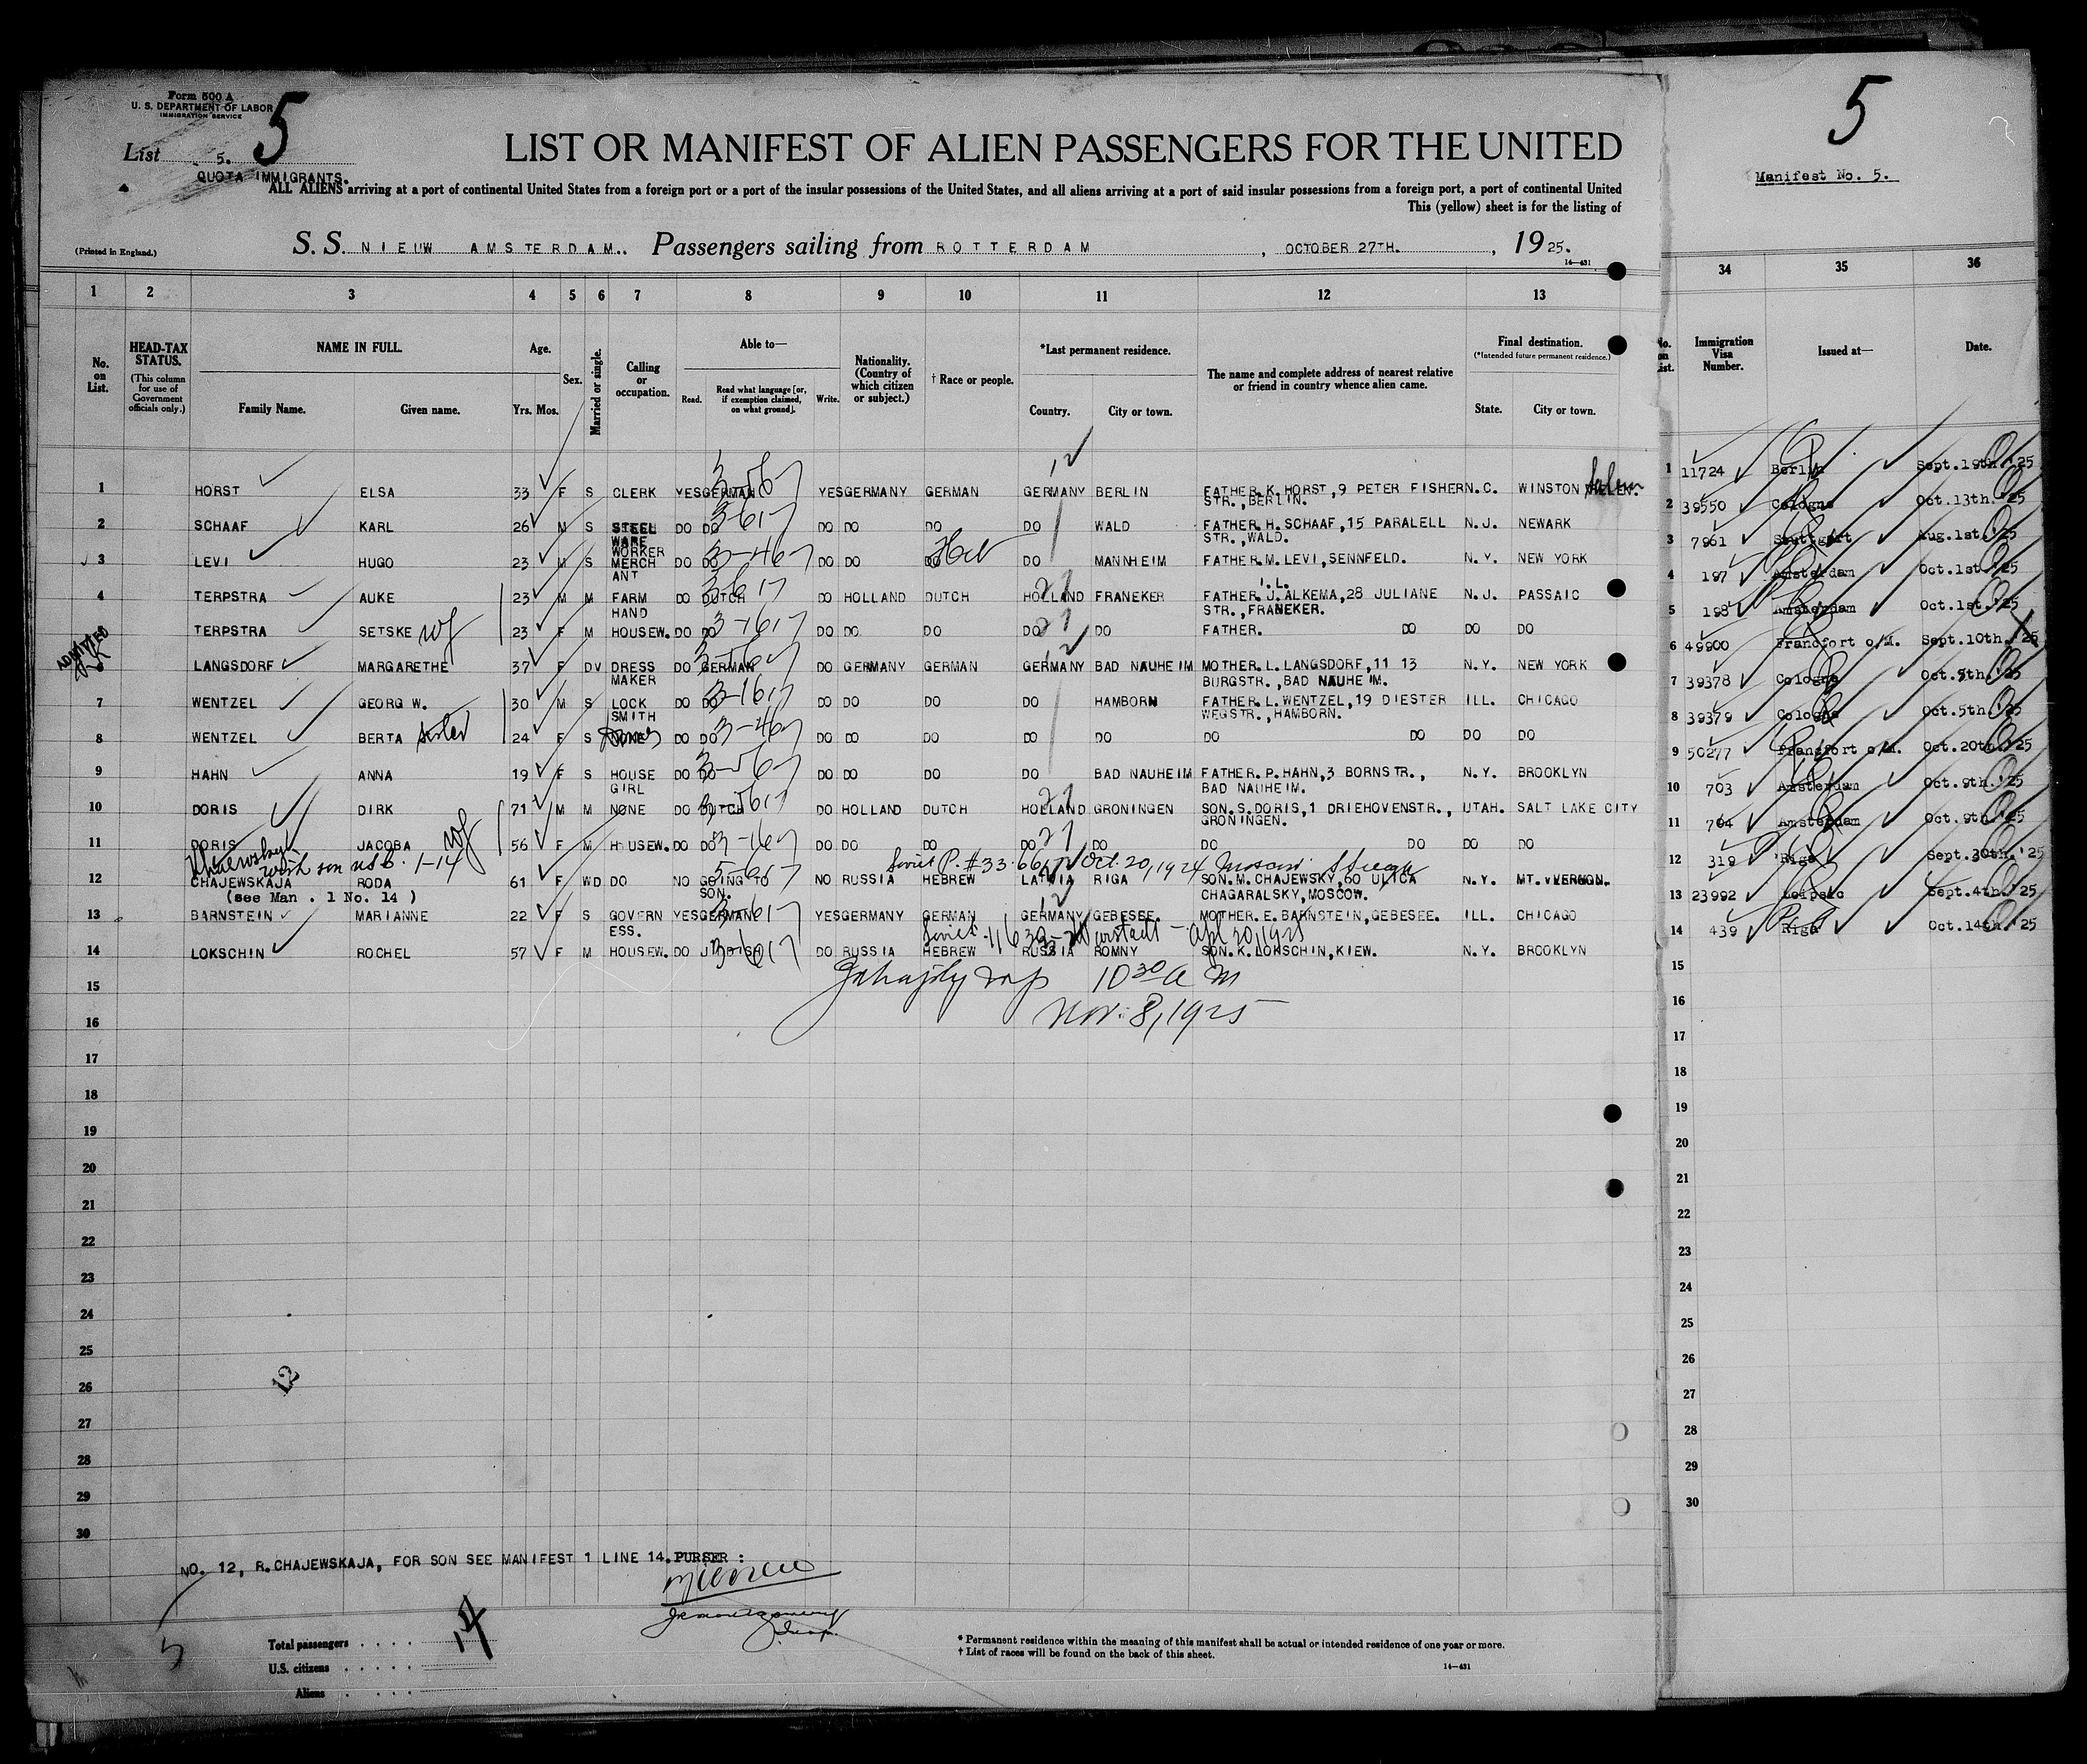 Form 500 A
U. S. DEPARTMENT OF LABOR
IMMIGRATION SERVICE
List 5. 5
QUOTA IMMIGRANTS.
LIST OR MANIFEST OF ALIEN PASSENGERS FOR THE UNITED
ALL ALIENS arriving at a port of continental United States from a foreign port or a port of the insular possessions of the United States, and all aliens arriving at a port of said insular possessions from a foreign port, a port of continental United
This (yellow) sheet is for the listing of
(Printed in England.)
S. S. NIEUW AMSTERDAM.. Passengers sailing from ROTTERDAM, OCTOBER 27TH., 1925.
14—431
1 2 3 4 5 6 7 8 9 10 11 12 13
No. on List.
HEAD-TAX STATUS. (This column for use of Government officials only.)
NAME IN FULL. Family Name. Given name.
Age. Yrs. Mos.
Sex.
Married or single.
Calling or occupation.
Able to— Read. Read what language [or, if exemption claimed, on what ground]. Write.
Nationality. (Country of which citizen or subject.)
† Race or people.
*Last permanent residence. Country. City or town.
The name and complete address of nearest relative or friend in country whence alien came.
Final destination. (*Intended future permanent residence.) State. City or town.
1 HORST ELSA 33 F S CLERK YES GERMAN YES GERMANY GERMAN GERMANY BERLIN FATHER.K.HORST,9 PETER FISHER N.C. WINSTON Salem
STR.,BERLIN.
2 SCHAAF KARL 26 M S STEEL DO DO DO DO DO DO WALD FATHER.H.SCHAAF,15 PARALELL N.J. NEWARK
WARE STR.,WALD.
WORKER
3 LEVI HUGO 23 M S MERCH DO DO DO DO DO Heb DO MANNHEIM FATHER.M.LEVI,SENNFELD. N.Y. NEW YORK
ANT
I.L.
4 TERPSTRA AUKE 23 M M FARM DO DUTCH DO HOLLAND DUTCH HOLLAND FRANEKER FATHER.J.ALKEMA,28 JULIANE N.J. PASSAIC
HAND STR.,FRANEKER.
5 TERPSTRA SETSKE wf 23 F M HOUSEW. DO DO DO DO DO DO DO FATHER. DO DO DO
ADMITTED
6 LANGSDORF MARGARETHE 37 F DV DRESS DO GERMAN DO GERMANY GERMAN GERMANY BAD NAUHEIM MOTHER.L.LANGSDORF,11 13 N.Y. NEW YORK
MAKER BURGSTR.,BAD NAUHEIM.
7 WENTZEL GEORG W. 30 M S LOCK DO DO DO DO DO DO HAMBORN FATHER.L.WENTZEL,19 DIESTER ILL. CHICAGO
SMITH WEGSTR.,HAMBORN.
8 WENTZEL BERTA sister 24 F S DO DO DO DO DO DO DO DO DO DO DO
9 HAHN ANNA 19 F S HOUSE DO DO DO DO DO DO BAD NAUHEIM FATHER.P.HAHN,3 BORNSTR., N.Y. BROOKLYN
GIRL BAD NAUHEIM.
10 DORIS DIRK 71 M M NONE DO DUTCH DO HOLLAND DUTCH HOLLAND GRONINGEN SON.S.DORIS,1 DRIEHOVENSTR., UTAH. SALT LAKE CITY
GRONINGEN.
11 DORIS JACOBA wf 56 F M HOUSEW. DO DO DO DO DO DO DO DO DO DO DO
with son 1-14 Soviet P. Oct. 20, 1924 Moscow
12 CHAJEWSKAJA RODA 61 F WD DO NO GOING TO NO RUSSIA HEBREW LATVIA RIGA SON.M.CHAJEWSKY,60 ULICA N.Y. MT.VERNON.
(see Man . 1 No. 14 ) SON. CHAGARALSKY,MOSCOW.
13 BARNSTEIN MARIANNE 22 F S GOVERN YES GERMAN YES GERMANY GERMAN GERMANY GEBESEE. MOTHER.E.BARNSTEIN,GEBESEE. ILL. CHICAGO
ESS.
14 LOKSCHIN ROCHEL 57 F M HOUSEW. DO JIDDISH DO RUSSIA HEBREW RUSSIA ROMNY SON.K.LOKSCHIN,KIEW. N.Y. BROOKLYN
15 10 30 a m
16 Nov. 8, 1925
17
18
19
20
21
22
23
24
25
26 12
27
28
29
30
NO. 12, R.CHAJEWSKAJA, FOR SON SEE MANIFEST 1 LINE 14. PURSER :
Total passengers . . . . 14
U.S. citizens . . . . .
Aliens . . . .
5
* Permanent residence within the meaning of this manifest shall be actual or intended residence of one year or more.
† List of races will be found on the back of this sheet.
14—431
5
Manifest No. 5.
34 35 36
No. on List. Immigration Visa Number. Issued at— Date.
1 11724 Berlin Sept.19th.'25
2 39550 Cologne Oct.13th.'25
3 7961 Stuttgart Aug.1st.'25
4 197 Amsterdam Oct.1st.'25
5 198 Amsterdam Oct.1st.'25
6 49900 Francfort o/M. Sept.10th.'25
7 39378 Cologne Oct.5th.'25
8 39379 Cologne Oct.5th.'25
9 50277 Francfort o/M. Oct.20th.'25
10 703 Amsterdam Oct.9th.'25
11 704 Amsterdam Oct.9th.'25
12 319 Riga Sept.30th.'25
13 23992 Leipsic Sept.4th.'25
14 439 Riga Oct.14th.'25
15
16
17
18
19
20
21
22
23
24
25
26
27
28
29
30